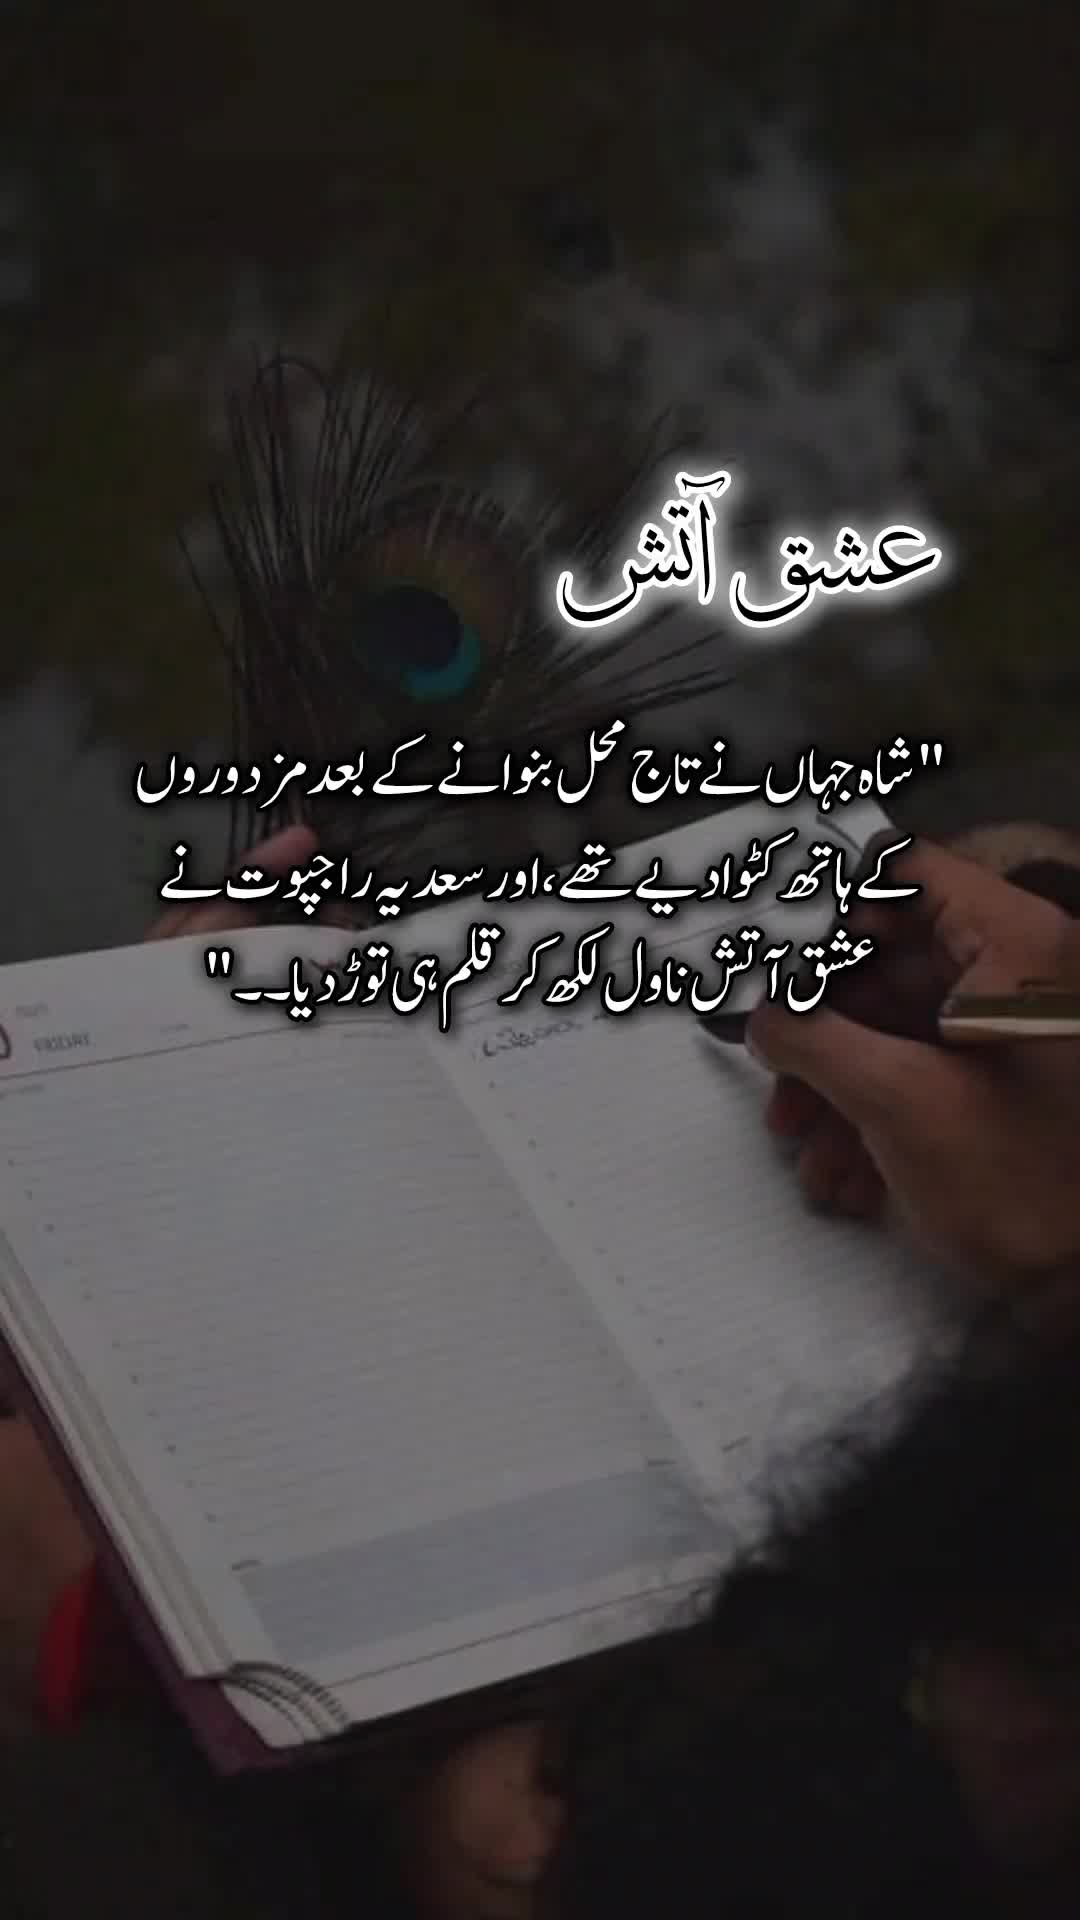 عشق آتش
"شاہ جہاں نے تاج محل بنوانے کے بعد مزدوروں
کے ہاتھ کٹوا دیے تھے، اور سعدیہ راجپوت نے
عشق آتش ناول لکھ کر قلم ہی توڑ دیا۔۔"
FRIDAY